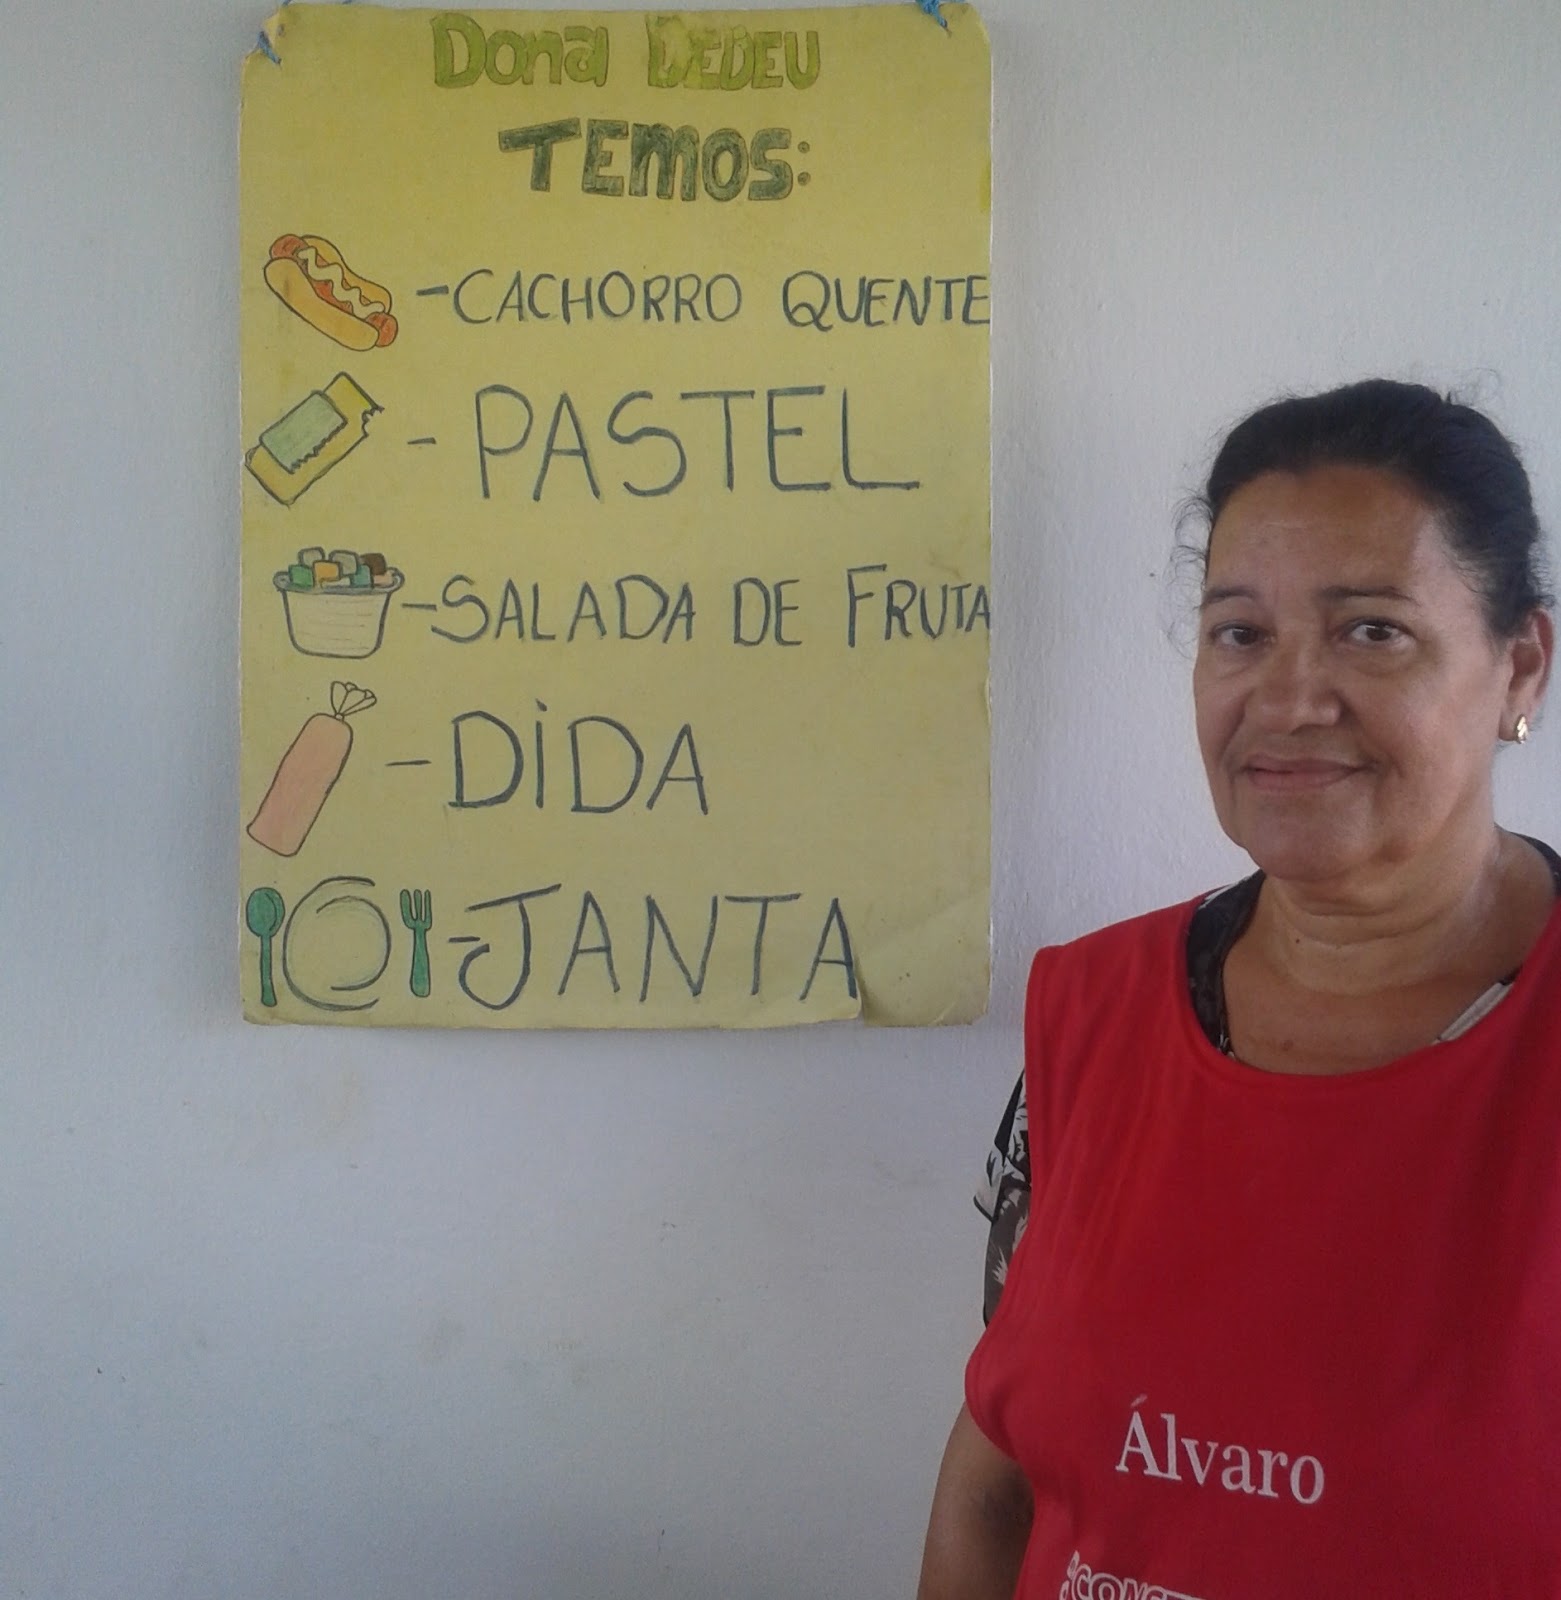 Dona DEDEU
TEMOS:
-CACHORRO QUENTE
- PASTEL
-SALADA DE FRUTA
-DiDA
-JANTA
Álvaro